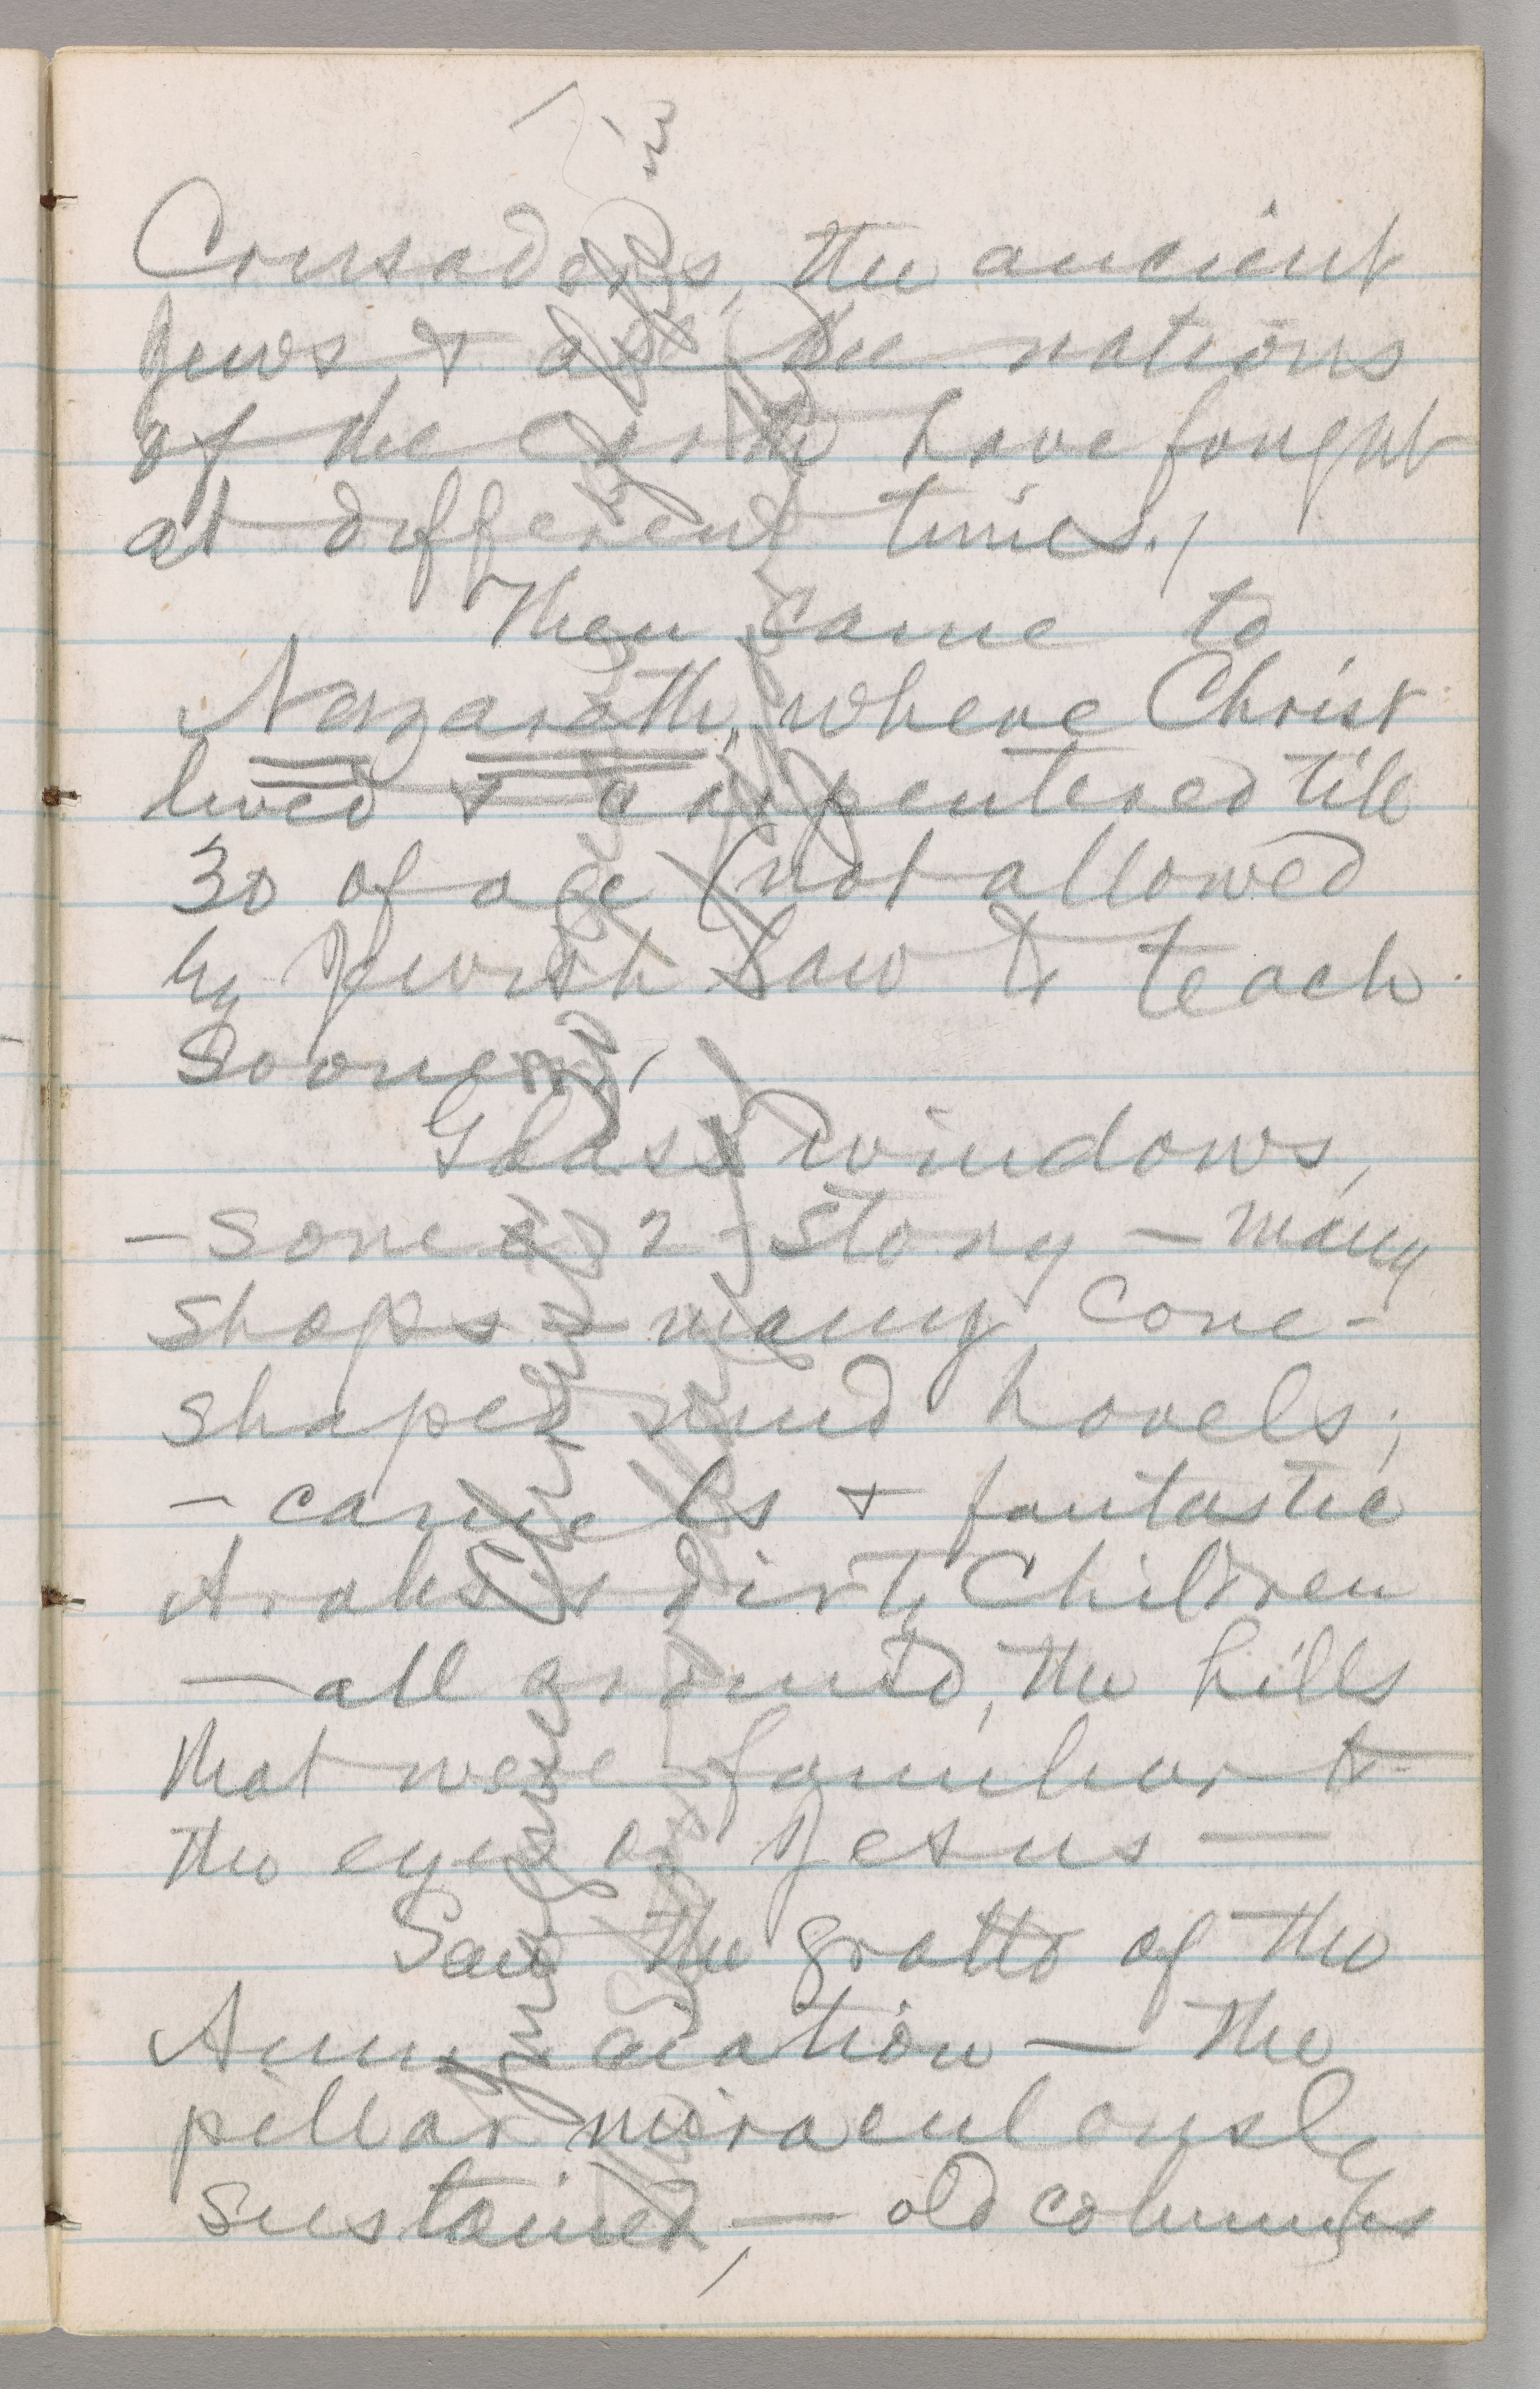 Crusaders, the ancient
Jews & all the nations
of the earth have fought
at different times.
Then came to
Nazareth, where Christ
lived & carpentered till
30 of age (not allowed
by Jewish law to teach
sooner.)
Glass windows,
— some 2-story — many
shops — many cone-
shaped mud hovels;
— camels & fantastic
Arabs & dirty children
— all around, the hills
that were familiar to
the eyes of Jesus —
Saw the grotto of the
Annunciation — the
pillar miraculously
sustained, — old columns